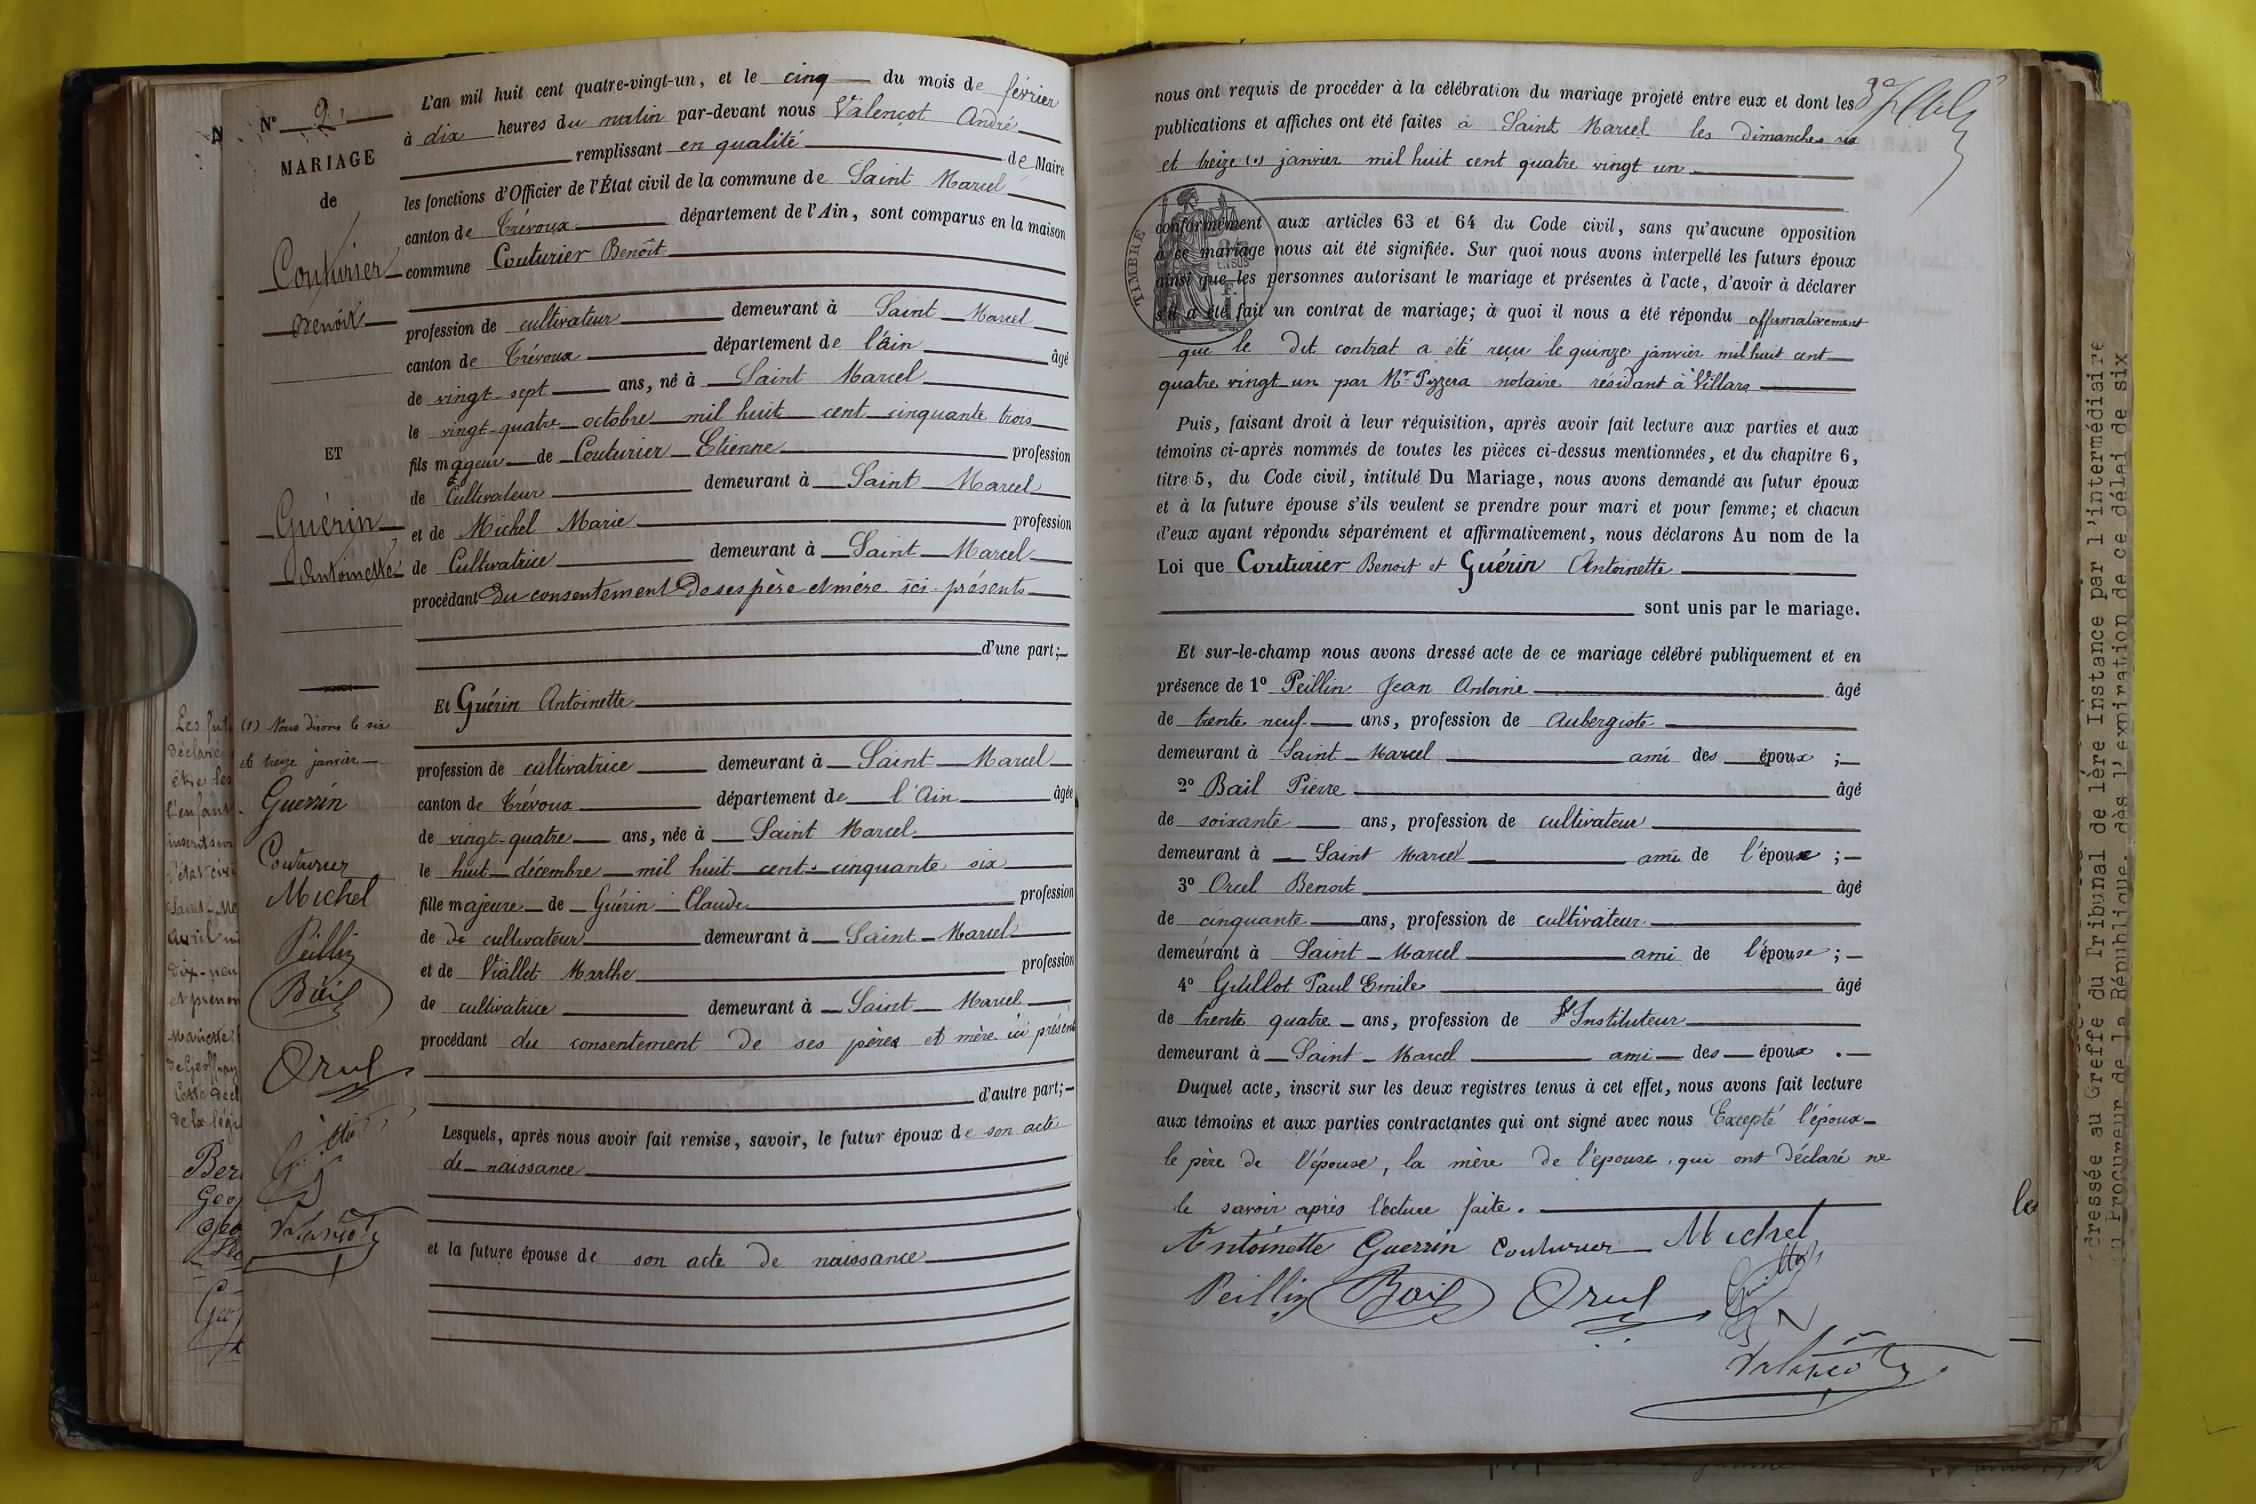 N° 2
MARIAGE
de
Couturier
Benoît
ET
Guérin
Antoinette
(1) Nous disons le six
et treize janvier
Guerrin
Couturier
Michel
Peillin
Bail
Orcel
L'an mil huit cent quatre-vingt-un, et le cinq du mois de février
à dix heures du matin par-devant nous Valençot André
remplissant en qualité de Maire
les fonctions d'Officier de l'État civil de la commune de Saint Marcel
canton de Trévoux département de l'Ain, sont comparus en la maison
commune Couturier Benoît
profession de cultivateur demeurant à Saint Marcel
canton de Trévoux département de l'ain âgé
de vingt-sept ans, né à Saint Marcel
le vingt-quatre octobre mil huit cent cinquante trois
fils mageur de Couturier Etienne profession
de Cultivateur demeurant à Saint Marcel
et de Michel Marie profession
de Cultivatrice demeurant à Saint Marcel
procédant du consentement de ses père et mère ici présents
d'une part;
Et Guérin Antoinette
profession de cultivatrice demeurant à Saint Marcel
canton de Trévoux département de l'Ain âgée
de vingt-quatre ans, née à Saint Marcel
le huit décembre mil huit cent cinquante six
fille majeure de Guérin Claude profession
de de cultivateur demeurant à Saint-Marcel
et de Viallet Marthe profession
de cultivatrice demeurant à Saint Marcel
procédant du consentement de ses père et mère ici présent
d'autre part;
Lesquels, après nous avoir fait remise, savoir, le futur époux de son acte
de naissance
et la future épouse de son acte de naissance
nous ont requis de procéder à la célébration du mariage projeté entre eux et dont les
publications et affiches ont été faites à Saint Marcel les dimanches six
et treize (1) janvier mil huit cent quatre vingt un
TIMBRE
conformément aux articles 63 et 64 du Code civil, sans qu'aucune opposition
à ce mariage nous ait été signifiée. Sur quoi nous avons interpellé les futurs époux
ainsi que les personnes autorisant le mariage et présentes à l'acte, d'avoir à déclarer
s'il a été fait un contrat de mariage; à quoi il nous a été répondu affirmativement
que le dit contrat a été reçu le quinze janvier mil huit cent
quatre vingt un par Mr Pyzera notaire résidant à Villars
Puis, faisant droit à leur réquisition, après avoir fait lecture aux parties et aux
témoins ci-après nommés de toutes les pièces ci-dessus mentionnées, et du chapitre 6,
titre 5, du Code civil, intitulé Du Mariage, nous avons demandé au futur époux
et à la future épouse s'ils veulent se prendre pour mari et pour femme; et chacun
d'eux ayant répondu séparément et affirmativement, nous déclarons Au nom de la
Loi que Couturier Benoit et Guérin Antoinette
sont unis par le mariage.
Et sur-le-champ nous avons dressé acte de ce mariage célébré publiquement et en
présence de 1° Peillin Jean Antoine âgé
de trente neuf ans, profession de Aubergiste
demeurant à Saint-Marcel ami des époux ;
2° Bail Pierre âgé
de soixante ans, profession de cultivateur
demeurant à Saint Marcel ami de l'époux ;
3° Orcel Benoit âgé
de cinquante ans, profession de cultivateur
demeurant à Saint-Marcel ami de l'épouse ;
4° Guillot Paul Emile âgé
de trente quatre ans, profession de Instituteur
demeurant à Saint-Marcel ami des époux .
Duquel acte, inscrit sur les deux registres tenus à cet effet, nous avons fait lecture
aux témoins et aux parties contractantes qui ont signé avec nous Excepté l'époux
le père de l'épouse, la mère de l'épouse, qui ont déclaré ne
le savoir après lecture faite.
Antoinette Guerrin Couturier Michel
Peillin Bail Orcel
dressée au Greffe du Tribunal de 1ère Instance par l'intermédiaire
du Procureur de la République, dès l'expiration de ce délai de six